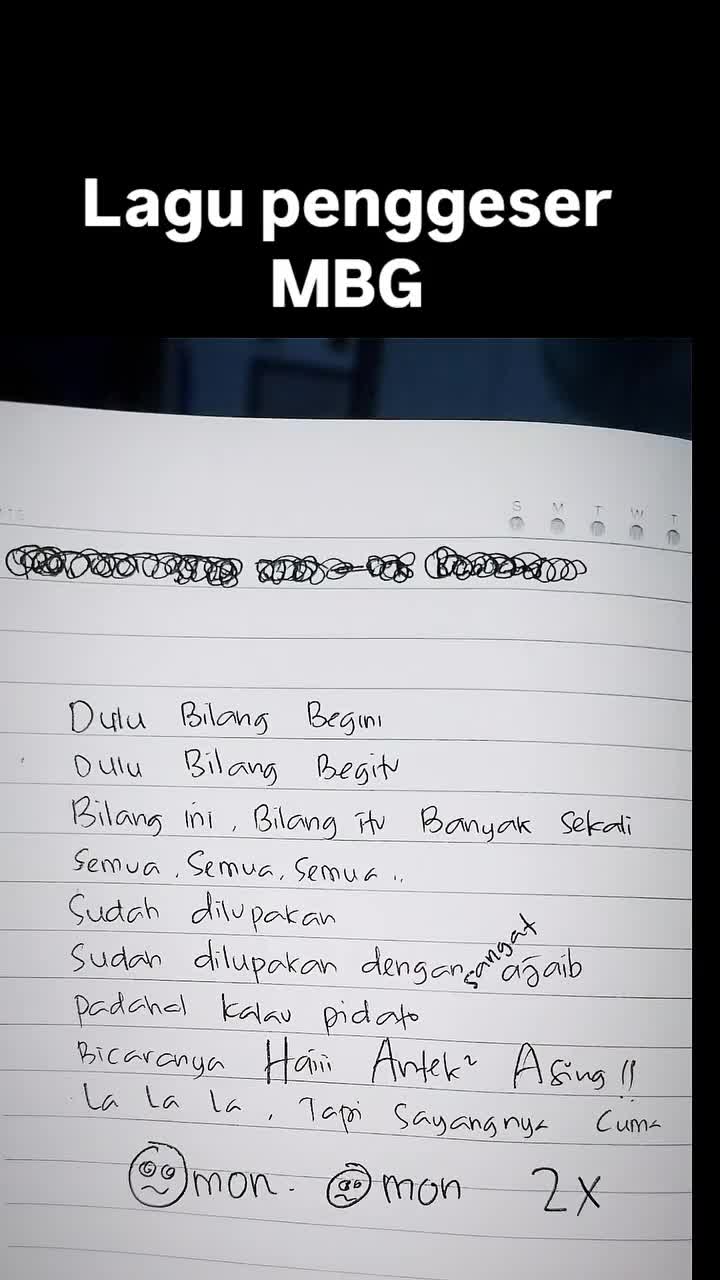 Lagu penggeser
MBG
S M T W T
Dulu Bilang Begini
Dulu Bilang Begitu
Bilang ini, Bilang itu Banyak sekali
Semua, Semua, Semua ..
Sudah dilupakan
Sudah dilupakan dengan sangat ajaib
Padahal kalau pidato
Bicaranya Haiii Antek² Asing!!
La La La, Tapi Sayangnya Cuma
Omon. Omon 2x